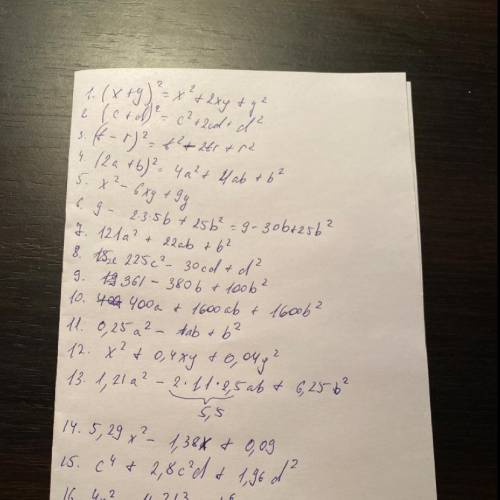 1. (x+y)² = x² + 2xy + y²
2. (c+d)² = c² + 2cd + d²
3. (t-r)² = t² - 2tr + r²
4. (2a+b)² = 4a² + 4ab + b²
5. x² - 6xy + 9y
6. 9 - 2·3·5b + 25b² = 9 - 30b + 25b²
7. 121a² + 22ab + b²
8. 225c² - 30cd + d²
9. 361 - 380b + 100b²
10. 400a + 1600ab + 1600b²
11. 0,25a² - 1ab + b²
12. x² + 0,4xy + 0,04y²
13. 1,21a² - 2·1,1·2,5ab + 6,25b²
5,5
14. 5,29x² - 1,38x + 0,09
15. c⁴ + 2,8c²d + 1,96d²
16.